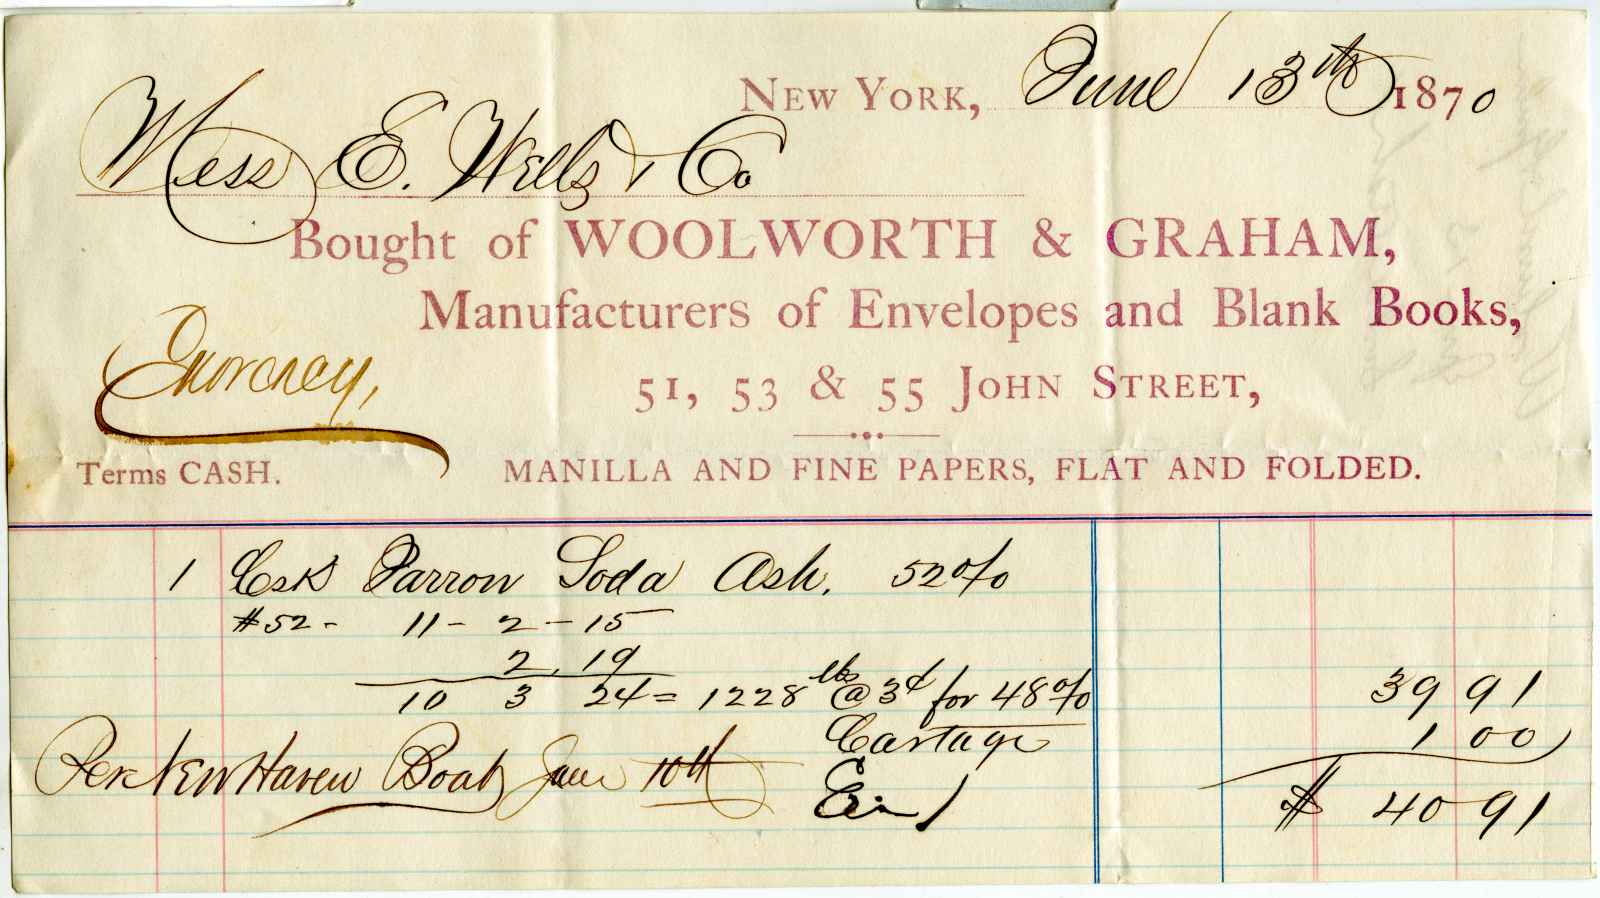 New York, June 13th 1870
Mess E. Wells & Co
Bought of WOOLWORTH & GRAHAM,
Manufacturers of Envelopes and Blank Books,
51, 53 & 55 John Street,
Terms CASH.
MANILLA AND FINE PAPERS, FLAT AND FOLDED.
1 Csk Parron Soda Ash. 52%
#52 - 11 - 2 - 15
2. 19
10 3 24 = 1228 lbs @ 3¢ for 48% 39 91
Cartage 1 00
Per New Haven Boat June 10th
$ 40 91